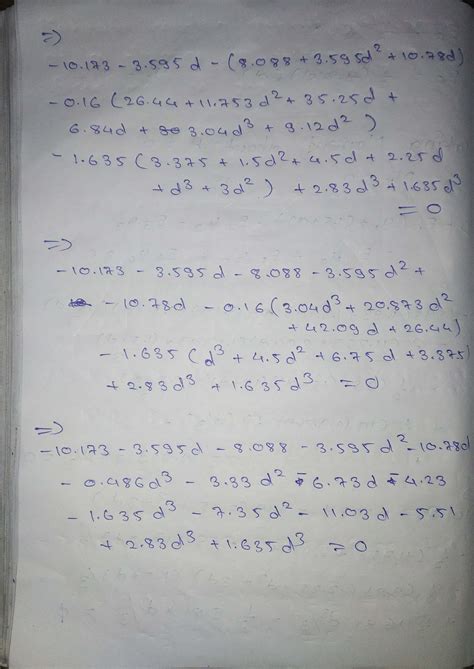 =>
-10.173 - 3.595d - (8.088 + 3.595d² + 10.78d)
-0.16 (26.44 + 11.753d² + 35.25d +
6.84d + 3.04d³ + 9.12d²)
- 1.635 (3.375 + 1.5d² + 4.5d + 2.25d
+ d³ + 3d²) + 2.83d³ + 1.635d³
= 0
=>
-10.173 - 3.595d - 8.088 - 3.595d² +
- 10.78d - 0.16 (3.04d³ + 20.873d²
+ 42.09d + 26.44)
- 1.635 (d³ + 4.5d² + 6.75d + 3.375)
+ 2.83d³ + 1.635d³ = 0
=>
-10.173 - 3.595d - 8.088 - 3.595d² - 10.78d
- 0.486d³ - 3.33d² - 6.73d - 4.23
- 1.635d³ - 7.35d² - 11.03d - 5.51
+ 2.83d³ + 1.635d³ = 0